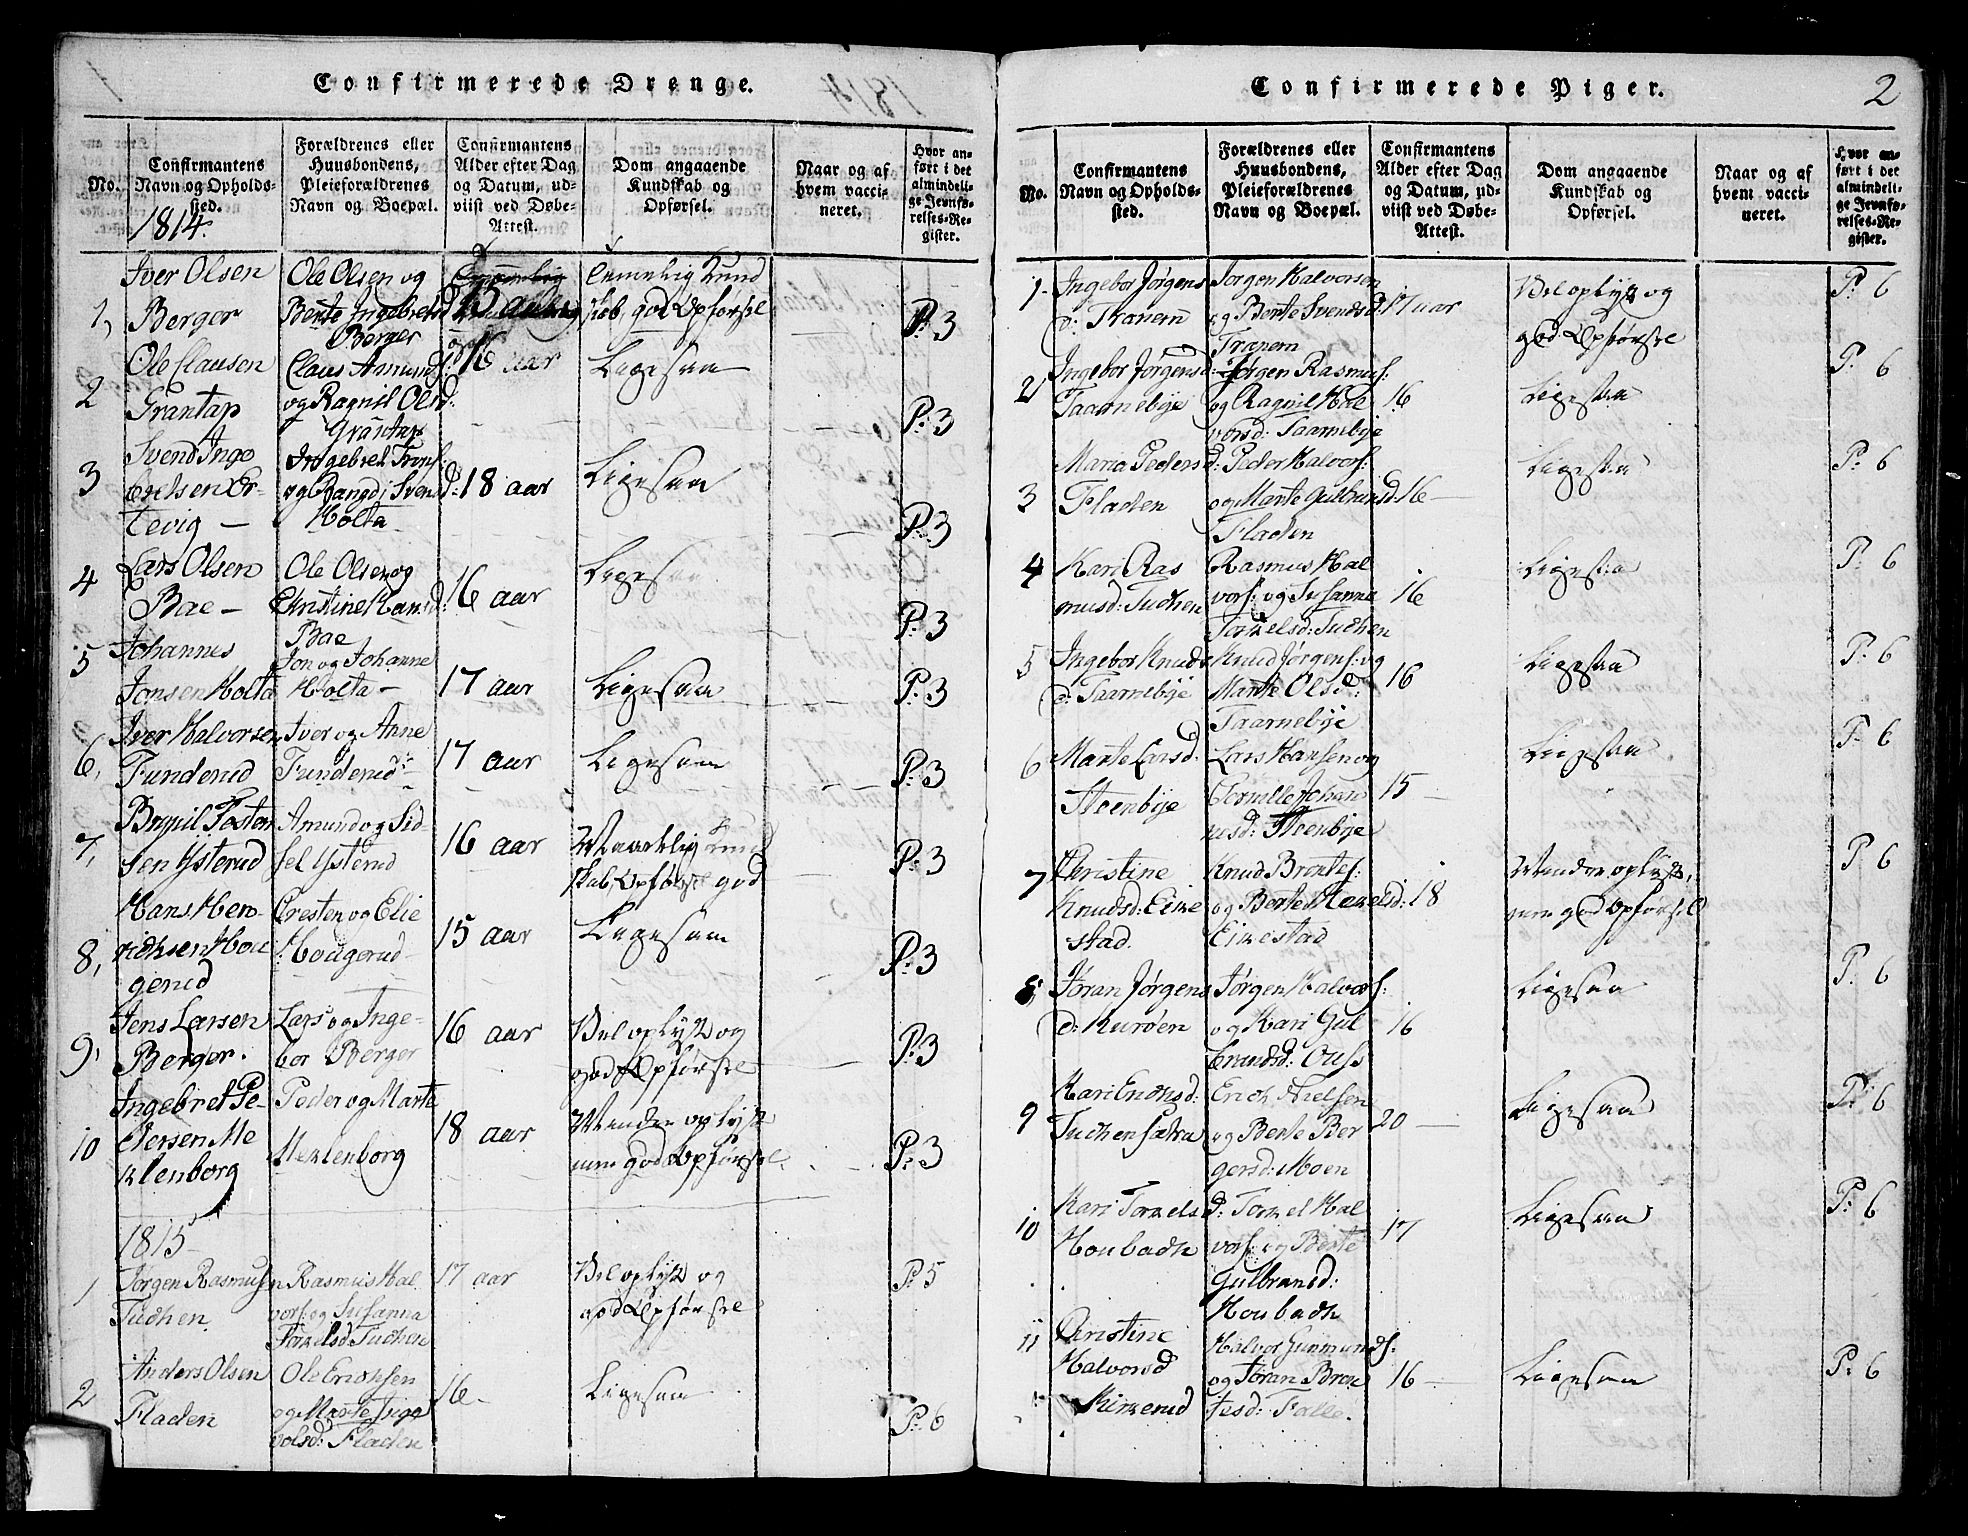 Confirmerede Drenge.
No.
Confirmantens Navn og Opholdssted.
Forældrenes eller Huusbondens, Pleieforældrenes Navn og Boepæl.
Confirmantens Alder efter Dag og Datum, udviist ved Døbe-Attest.
Dom angaaende Kundskab og Opførsel.
Naar og af hvem vaccineret.
Hvor anført i det almindelige Jevnførelses-Register.
1814.
1, Iver Olsen Berger
Ole Olsen og Bente Ingebretsd Berger
15 aar
temmelig Kundskab, god Opførsel
P: 3
2 Ole Clausen Grantap
Claus Amunds: og Ragnil Olsd: Grantap
16 aar
Ligesaa
P: 3
3 Svend Ingebretsen Ertevig
Ingebret Trons: og Rangdi Svensd: Holta
18 aar
Ligesaa
P: 3
4 Lars Olsen Bae
Ole Olsen og Christine Hansd: Bae
16 aar
Ligesaa
P: 3
5 Johannes Jonsen Holta
Jon og Johanne Holta
17 aar
Ligesaa
P: 3
6, Iver Halvorsen Funderud
Iver og Anne Funderud
17 aar
Ligesaa
P: 3
7, Brynil Tosten
sen Ysterud
Amund og Sidsel Ysterud
16 aar
Maadelig Kundskab, Opførsel god
P: 3
8, Hans Henrichsen Hougerud
Cresten og Elie Hougerud
15 aar
Ligesaa
P: 3
9, Jens Larsen Berger.
Lars og Ingebor Berger
16 aar
Vel oplyst og god Opførsel
P: 3
10 Ingebret Pedersen Meklenborg
Peder og Marte Meklenborg
18 aar
Mindre oplyst men god Opførsel
P: 3
1815
1 Jørgen Rasmusen Tuchen
Rasmus Halvors: og Susanna Torkelsd: Tuchen
17 aar
Vel oplyst og god Opførsel
P: 5
2 Anders Olsen Fladen
Ole Erichsen og Marte Ingevolsd: Fladen
16
Ligesaa
P: 6
Confirmerede Piger.
2
No.
Confirmantens Navn og Opholdssted.
Forældrenes eller Huusbondens, Pleieforældrenes Navn og Boepæl.
Confirmantens Alder efter Dag og Datum, udviist ved Døbe-Attest.
Dom angaaende Kundskab og Opførsel.
Naar og af hvem vaccineret.
Hvor anført i det almindelige Jevnførelses-Register.
1 Ingebor Jørgens d: Tranem
Jørgen Halvorsen og Bente Svendsd: Tranem
17 aar
Vel oplyst og god Opførsel
P: 6
2 Ingebor Jørgensd: Taarnebye
Jørgen Rasmus: og Ragnil Halvorsd: Taarnebye
16
Ligesaa
P: 6
3 Maria Pedersd: Fladen
Peder Halvors: og Marte Gulbransd: Fladen
16
Ligesaa
P: 6
4 Kari Rasmusd: Tuchen
Rasmus Halvors: og Susanna Torkelsd: Tuchen
16
Ligesaa
P: 6
5 Ingebor Knuds d: Taarnebye
Knud Jørgens: og Marte Olsd: Taarnebye
16
Ligesaa
P: 6
6 Marte Larsd: Steenbye
Lars Hansen og Pernille Johannesd: Steenbye
15
Ligesaa
P: 6
7 Christine Knudsd: Eikestad.
Knud Brontes: og Berte Hakelsd: Eikestad
18
Mindre oplyst, men god Opførsel
P: 6
8 Jøran Jørgens d: Kurøen
Jørgen Halvors: og Kari Gulbrandsd: Ouss
16
Ligesaa
P: 6
9 Kari Erichsd: Tuchensætra
Erich Nielsen og Berte Bergersd: Moen
20
Ligesaa
P: 6
10 Kari Torkels d: Houbach
Torkel Halvors: og Berte Gulbransd: Houbach
17
Ligesaa
P: 6
11 Christine Halvorsd Kirkerud
Halvor Gunmunds: og Jøran Brontesd: Falle.
16
Ligesaa
P: 6